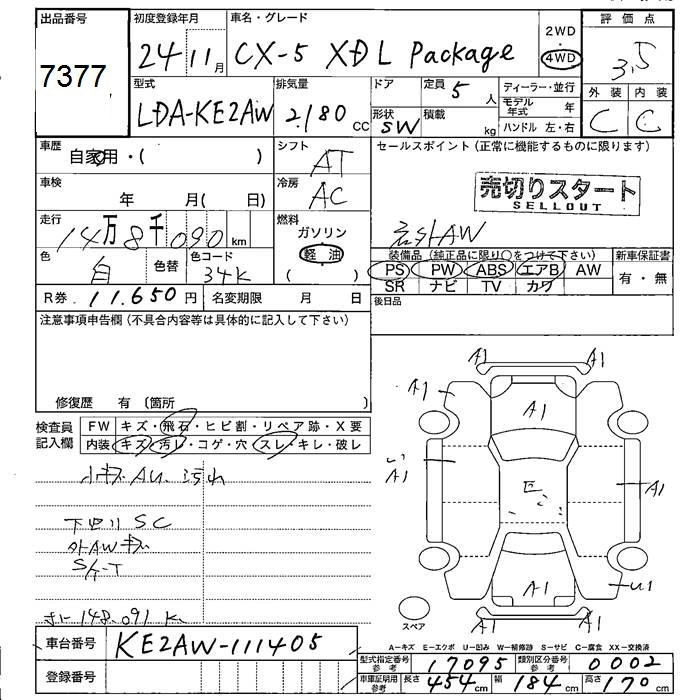 出品番号
7377
初度登録年月
24 11月
車名・グレード
CX-5 XD L Package
2WD
4WD
評価点
3.5
外装 内装
C C
型式
LDA-KE2AW
排気量
2180 CC
ドア
形状
SW
定員
5人
積載
kg
ディーラー・並行
モデル年式 年
ハンドル 左・右
車歴
自家用・( )
シフト
AT
セールスポイント(正常に機能するものに限ります)
売切りスタート
SELLOUT
車検
年 月( 日)
冷房
AC
走行
14万8千090km
燃料
ガソリン
軽油
( )
色
白
色替
色コード
34K
装備品(純正品に限り○をつけて下さい)
PS PW ABS エアB AW
SR ナビ TV カワ
新車保証書
有・無
R券 11,650円
名変期限 月 日
後日品
注意事項申告欄(不具合内容等は具体的に記入して下さい)
修復歴 有〔箇所 〕
検査員記入欄
FW キズ・飛石・ヒビ割・リペア跡・X要
内装 キズ・汚レ・コゲ・穴・スレ・キレ・破レ
SC
148,091 K
A1 A1
A1
A1
A1
A1
A1
U1
A1 A1
スペア
A=キズ E=エクボ U=凹み W=補修跡 S=サビ C=腐食 XX=交換済
車台番号
KE2AW-111405
登録番号
型式指定番号 参考
17095
類別区分番号 参考
0002
車庫証明用 参考
長さ 454cm 幅 184cm 高さ 170cm